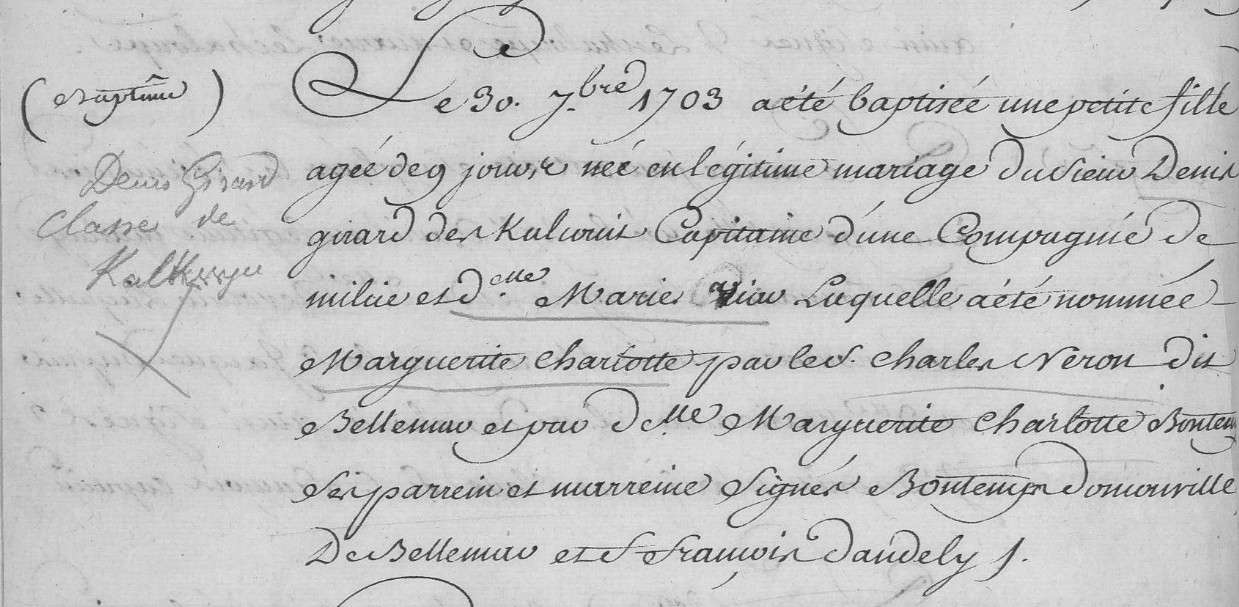 (Baptême)
Le 30. 7.bre 1703 a été baptisée une petite fille
agée de 9 jours née en légitime mariage du Sieur Denis
girard des Kalcouit Capitaine d'une Compagnie de
milice et d.elle Marie Viau Laquelle a été nommée
Marguerite Charlotte par le S. Charles Neron dit
Bellemar et par d.lle Marguerite Charlotte Bontem
Ses parrein et marreine Signés Bontemps
De Bellemar et f. françois dandely /.
Denis Girard
Classe de